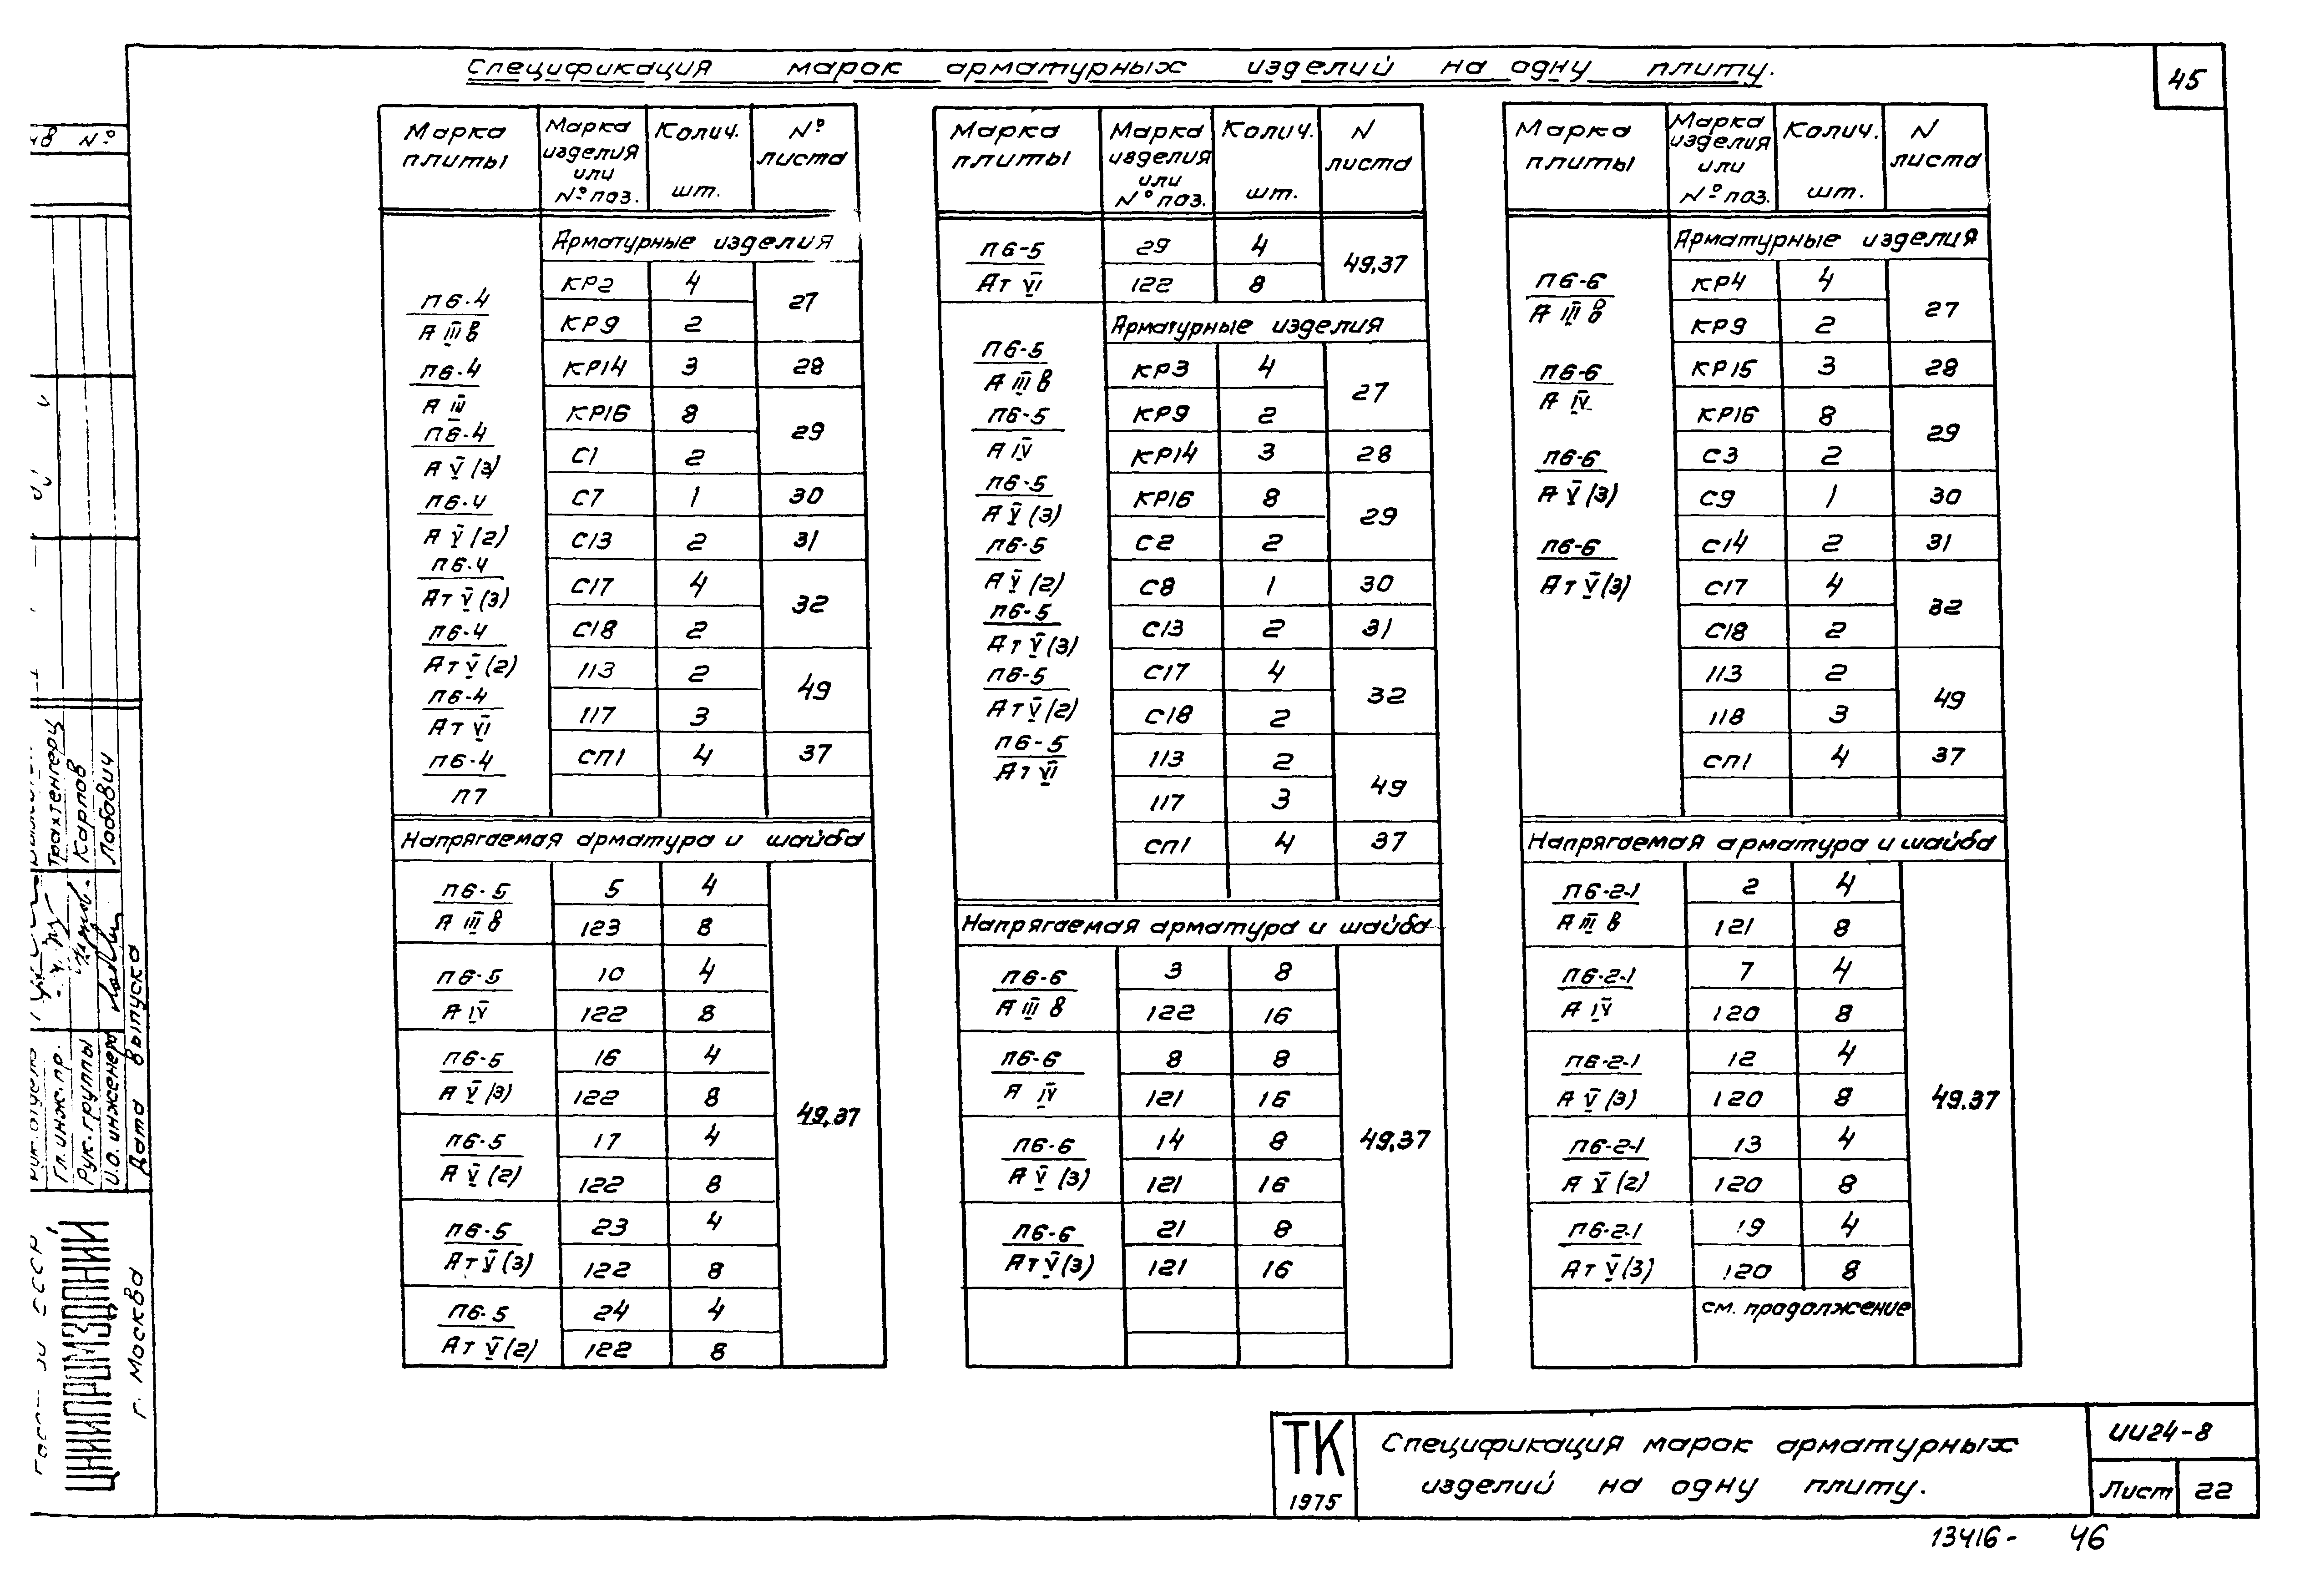 45
Спецификация марок арматурных изделий на одну плиту.
Марка плиты | Марка изделия или №поз. | Колич. шт. | № листа
Арматурные изделия
П6-4 / А IIIв
П6-4 / А IV
П6-4 / А V (3)
П6-4 / А V (2)
П6-4 / Ат V (3)
П6-4 / Ат V (2)
П6-4 / Ат VI
П6-4 / П7
КР2 4 27
КР9 2
КР14 3 28
КР16 8 29
С1 2
С7 1 30
С13 2 31
С17 4 32
С18 2
113 2 49
117 3
СП1 4 37
Напрягаемая арматура и шайба
П6-5 / А IIIв 5 4
123 8
П6-5 / А IV 10 4
122 8
П6-5 / А V (3) 16 4
122 8
49,37
П6-5 / А V (2) 17 4
122 8
П6-5 / Ат V (3) 23 4
122 8
П6-5 / Ат V (2) 24 4
122 8
Марка плиты | Марка изделия или №поз. | Колич. шт. | N листа
П6-5 / Ат VI 29 4 49,37
122 8
Арматурные изделия
П6-5 / А IIIв
П6-5 / А IV
П6-5 / А V (3)
П6-5 / А V (2)
П6-5 / Ат V (3)
П6-5 / Ат V (2)
П6-5 / Ат VI
КР3 4 27
КР9 2
КР14 3 28
КР16 8 29
С2 2
С8 1 30
С13 2 31
С17 4 32
С18 2
113 2 49
117 3
СП1 4 37
Напрягаемая арматура и шайба
П6-6 / А IIIв 3 8
122 16
П6-6 / А IV 8 8
121 16
П6-6 / А V (3) 14 8 49,37
121 16
П6-6 / Ат V (3) 21 8
121 16
Марка плиты | Марка изделия или №поз. | Колич. шт. | N листа
Арматурные изделия
П6-6 / А IIIв
П6-6 / А IV
П6-6 / А V (3)
П6-6 / Ат V (3)
КР4 4 27
КР9 2
КР15 3 28
КР16 8 29
С3 2
С9 1 30
С14 2 31
С17 4 32
С18 2
113 2 49
118 3
СП1 4 37
Напрягаемая арматура и шайба
П6-2-1 / А IIIв 2 4
121 8
П6-2-1 / А IV 7 4
120 8
П6-2-1 / А V (3) 12 4
120 8
49.37
П6-2-1 / А V (2) 13 4
120 8
П6-2-1 / Ат V (3) 19 4
120 8
см. продолжение
№
Гл. инж. пр. Трахтенгерц
Рук. группы Карпов
И.О. инженера Лабович
Дата выпуска
СССР
ЦНИИПРОМЗДАНИЙ
г. Москва
ТК
1975
Спецификация марок арматурных
изделий на одну плиту.
ИИ24-8
Лист 22
13416- 46